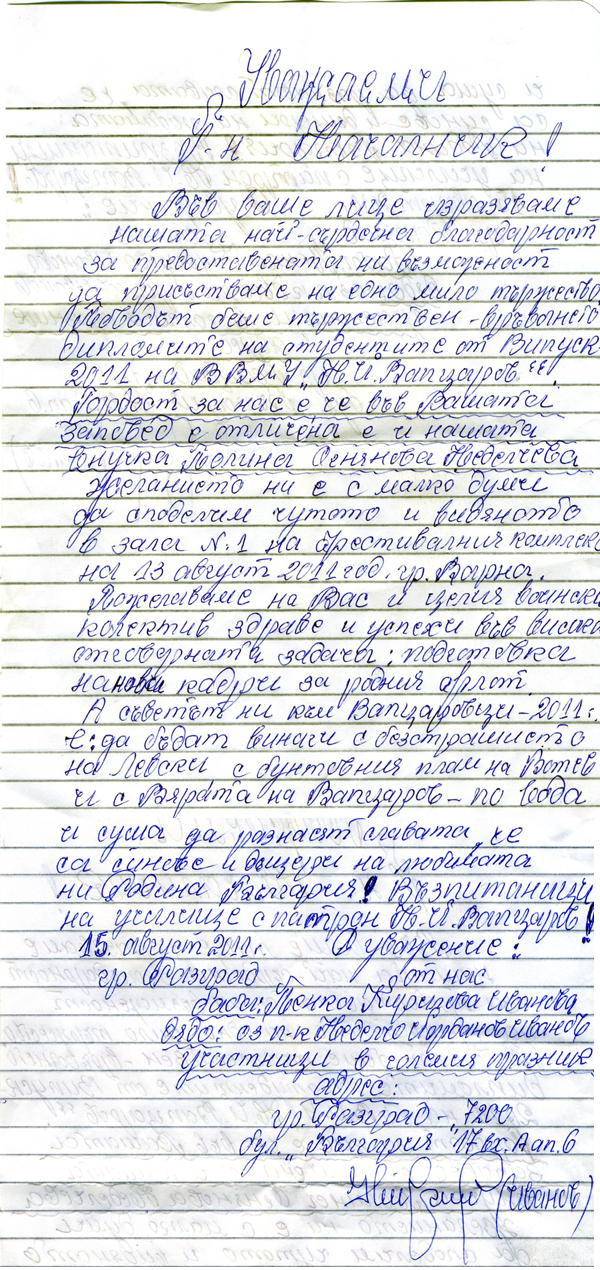 Уважаеми
Г-н Началник!
Във ваше лице изразяваме
нашата най-сърдечна благодарност
за предоставената ни възможност
да присъстваме на едно мило тържество
Поводът беше тържествен - връчването
дипломите на студентите от Випуск
2011 на ВВМУ "Н.Й. Вапцаров."
Гордост за нас е че във Вашата
заповед е отличена е и нашата
внучка Полина Сенянова Неделчева
Желанието ни е с малко думи
да споделим чутото и видяното
в зала №1 на Фестивалния комплекс
на 13 август 2011 год. гр. Варна.
Пожелаваме на Вас и целия воински
колектив здраве и успехи във високо
отговорната задача: подготовка
на нови кадри за родния флот.
А съветът ни към Вапцаровци - 2011г.
е: да бъдат винаги с безстрашието
на Левски с бунтовния плам на Ботев
и с Вярата на Вапцаров - по вода
и суша да разнасят славата, че
са синове и дъщери на любимата
ни Родина България! Възпитаници
на училище с патрон Н.Й. Вапцаров!
15. август 2011г. С уважение:
гр. Разград от нас
баба: Пенка Киризова Иванова
дядо: оз п-к Неделчо Йорданов Иванов
участници в големия празник
адрес:
гр. Разград - 7200
бул. "България" 17 вх. А ап. 6
(Иванов)